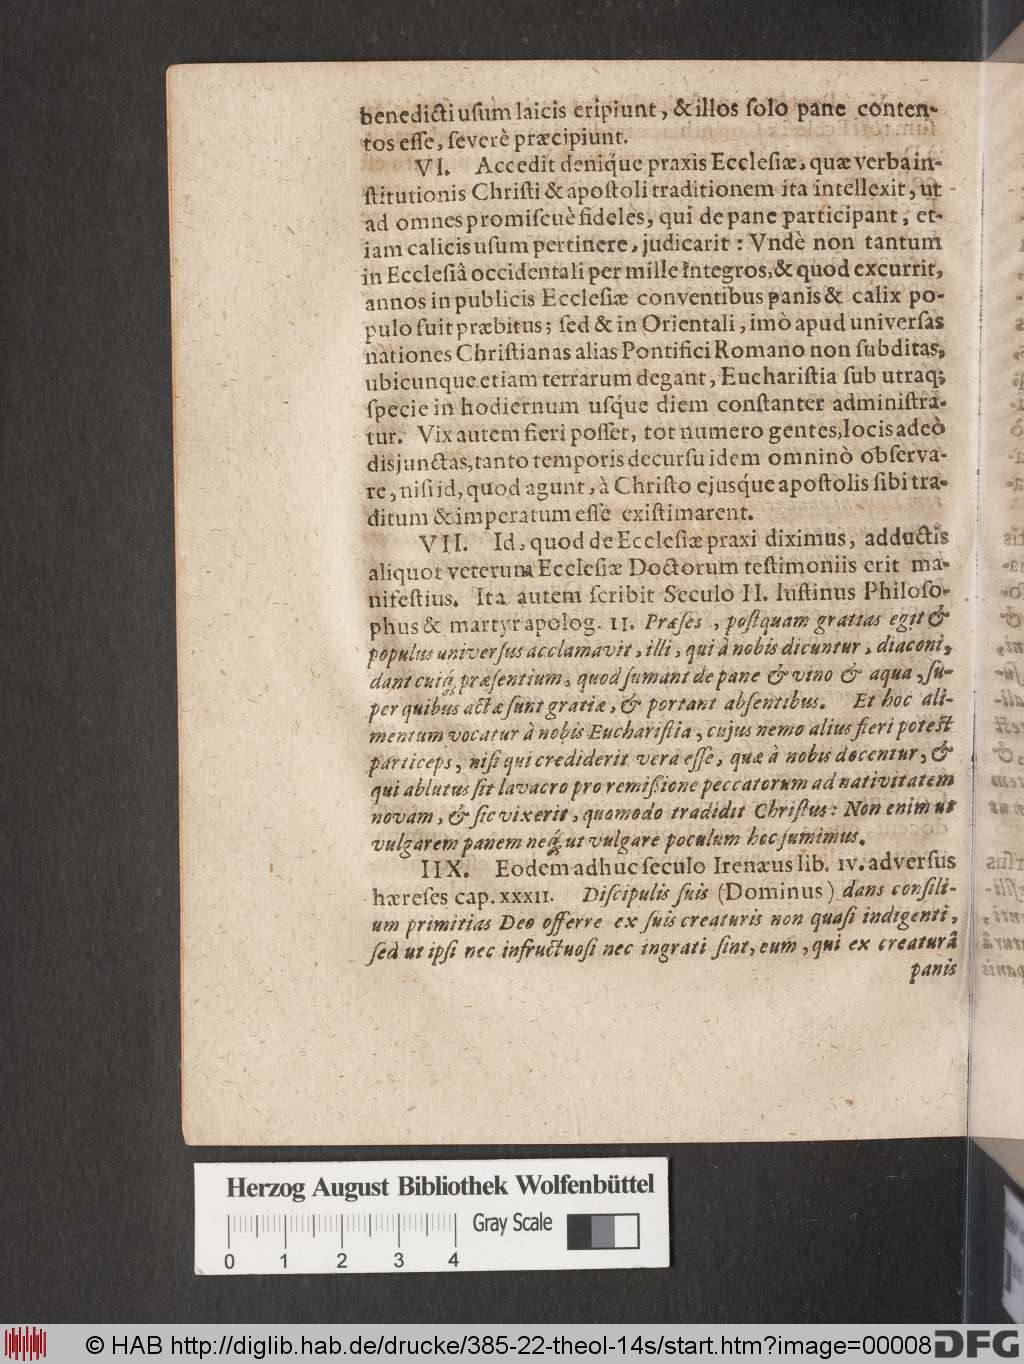 benedicti usum laicis eripiunt, & illos solo pane conten-
tos esse, severè præcipiunt.
VI. Accedit deniq́ue praxis Ecclesiæ, quæ verba in-
stitutionis Christi & apostoli traditionem ita intellexit, ut
ad omnes promiscuè fideles, qui de pane participant, et-
iam calicis usum pertinere, judicarit: Vndè non tantum
in Ecclesiâ occidentali per mille integros, & quod excurrit,
annos in publicis Ecclesiæ conventibus panis & calix po-
pulo fuit præbitus; sed & in Orientali, imò apud universas
nationes Christianas alias Pontifici Romano non subditas,
ubicunque etiam terrarum degant, Eucharistia sub utraq;
specie in hodiernum usq́ue diem constanter administra-
tur. Vix autem fieri posset, tot numero gentes, locis adeò
disjunctas, tanto temporis decursu idem omninò observa-
re, nisi id, quod agunt, à Christo ejusq́ue apostolis sibi tra-
ditum & imperatum esse existimarent.
VII. Id, quod de Ecclesiæ praxi diximus, adductis
aliquot veterum Ecclesiæ Doctorum testimoniis erit ma-
nifestius. Ita autem scribit Seculo II. Iustinus Philoso-
phus & martyr apolog. II. Præses, postquam gratias egit &
populus universus acclamavit, illi, qui à nobis dicuntur, diaconi,
dant cuiq́; præsentium, quod sumant de pane & vino & aqua, su-
per quibus actæ sunt gratiæ, & portant absentibus. Et hoc ali-
mentum vocatur à nobis Eucharistia, cujus nemo alius fieri potest
particeps, nisi qui crediderit vera esse, quæ à nobis docentur, &
qui ablutus sit lavacro pro remißione peccatorum ad nativitatem
novam, & sic vixerit, quomodo tradidit Christus: Non enim ut
vulgarem panem neq́; ut vulgare poculum hoc sumimus.
IIX. Eodem adhuc seculo Irenæus lib. IV. adversus
hæreses cap. XXXII. Discipulis suis (Dominus) dans consili-
um primitias Deo offerre ex suis creaturis non quasi indigenti,
sed ut ipsi nec infructuosi nec ingrati sint, eum, qui ex creaturâ
panis
Herzog August Bibliothek Wolfenbüttel
Gray Scale
0 1 2 3 4
© HAB http://diglib.hab.de/drucke/385-22-theol-14s/start.htm?image=00008
DFG